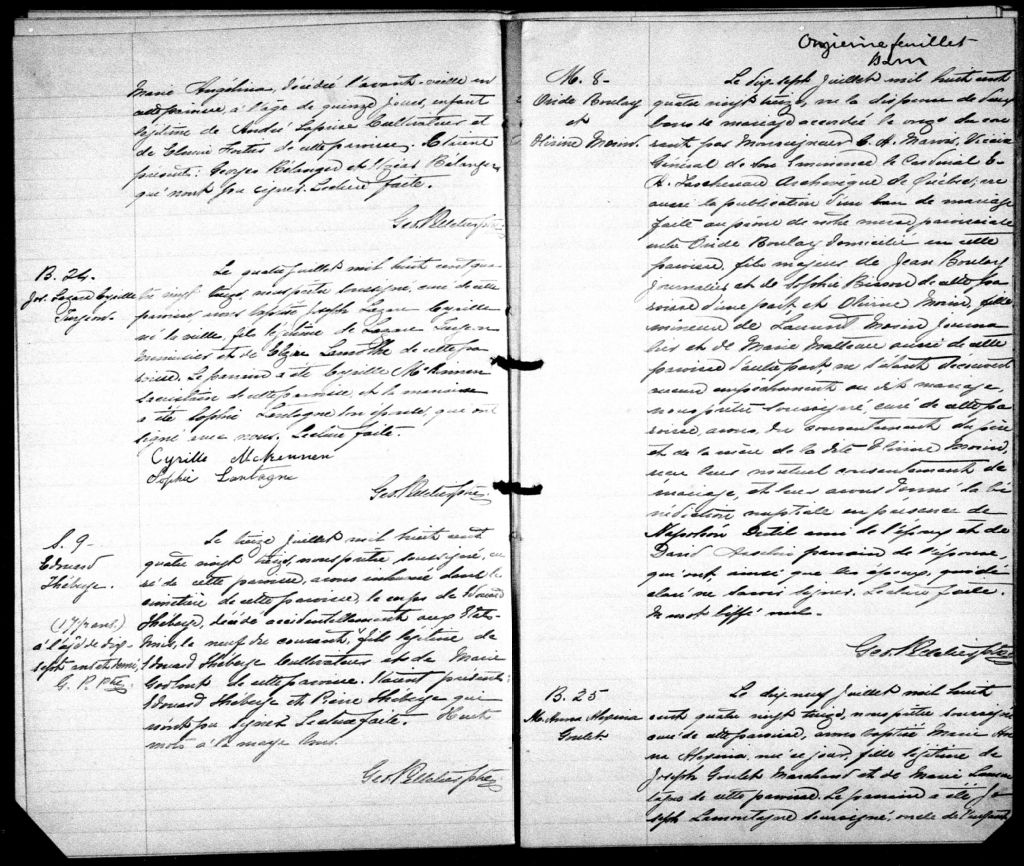 Marie Angélina, décédée l'avant-veille en
cette paroisse, à l'âge de quinze jours, enfant
légitime de André Lapierre Cultivateur et
de de cette paroisse. Etaient
présents: Georges Bélanger et Bélanger
qui n'ont su signer. Lecture faite.
Geo. Pelletier, ptre
B. 24.
Jos. Lazare Cyrille
Turgeon.
Le quatre juillet mil huit cent qua-
tre vingt treize, nous prêtre soussigné, curé de cette
paroisse avons baptisé Joseph Lazare Cyrille
né la veille, fils légitime de Lazare Turgeon
menuisier et de Lamothe de cette pa-
roisse. Le parrain a été Cyrille McKennen
secrétaire de cette paroisse, et la marraine
a été Sophie Lantagne son épouse, qui ont
signé avec nous. Lecture faite.
Cyrille McKennen
Sophie Lantagne
Geo. Pelletier, ptre.
S. 9-
Edouard
Théberge.
(17½ ans)
à l'âge de dix-
sept ans et demi,
G. P. Ptre
Le treize juillet mil huit cent
quatre vingt treize, nous prêtre soussigné, cu-
ré de cette paroisse, avons inhumé dans le
cimetière de cette paroisse, le corps de Edouard
Théberge, décédé accidentellement aux Etats-
Unis, le neuf du courant, fils légitime de
Edouard Théberge Cultivateur et de Marie
de cette paroisse. Etaient présents:
Edouard Théberge et Pierre Théberge qui
n'ont su signer. Lecture faite. Huit
mots à la marge bons.
Geo. Pelletier, ptre
Onzième feuillet
M. 8-
Ovide Boulay
et
Olivine Morin.
Le dix-sept Juillet mil huit cent
quatre vingt treize, vu la dispense de deux
bans de mariage accordée le onze du cou-
rant par Monseigneur C. A. Marois, Vicaire
Général de Son Eminence le Cardinal E.
A. Taschereau Archevêque de Québec, vu
aussi la publication d'un ban de mariage
faite au prône de notre messe paroissiale
entre Ovide Boulay domicilié en cette
paroisse, fils majeur de Jean Boulay
Journalier et de Sophie de cette pa-
roisse d'une part, et Olivine Morin, fille
mineure de Laurent Morin Journa-
lier et de Marie Nadeau aussi de cette
paroisse d'autre part ne s'étant découvert
aucun empêchement au dit mariage,
nous prêtre soussigné, curé de cette pa-
roisse, avons, du consentement du père
et de la mère de la dite Olivine Morin,
reçu leur mutuel consentement de
mariage, et leur avons donné la bé-
nédiction nuptiale en présence de
Napoléon ami de l'époux et de
David parrain de l'épouse,
qui ont, ainsi que les époux, qui dé-
claré ne savoir signer. Lecture faite.
Un mot biffé nul.
Geo. Pelletier, ptre
B. 25
M. Anna Alexina
Goulet
Le dix neuf Juillet mil huit
cent quatre vingt treize, nous prêtre soussigné
curé de cette paroisse, avons baptisé Marie An-
na Alexina, née ce jour, fille légitime de
Joseph Goulet Marchand et de Marie
de cette paroisse. Le parrain a été Jo-
seph Lamontagne soussigné, oncle de l'enfant